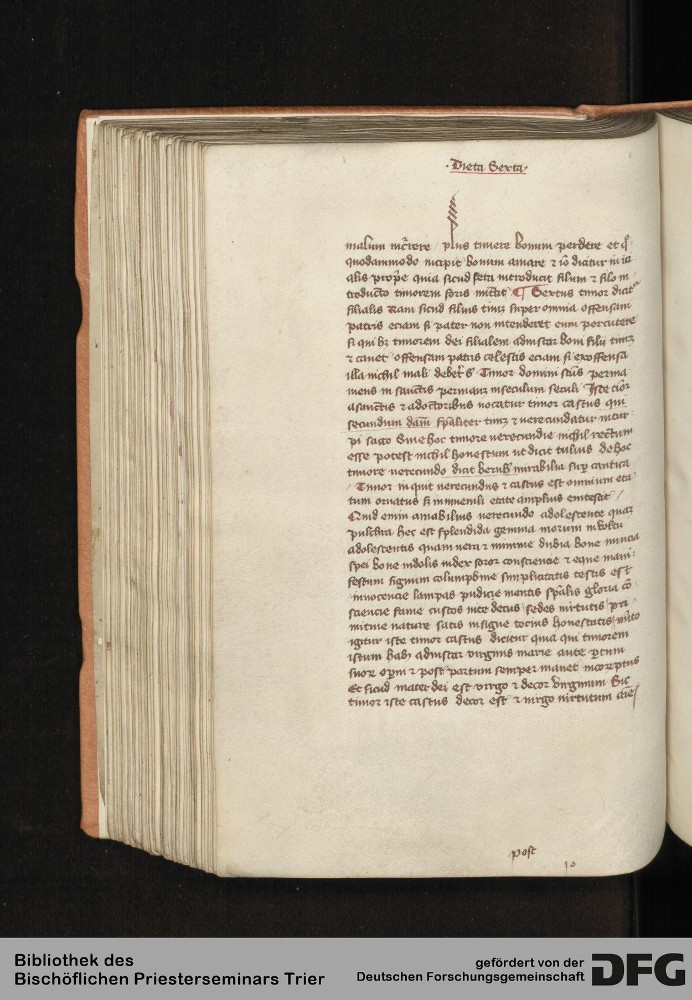 ·Dieta Sexta·
malum incurrere plus timere bonum perdere et q
quodammodo incipit bonum amare ⁊ io dicitur inici
alis proprie quia sicud seta introducit filum ⁊ filo in
troducto timorem foris mittit ¶ Sextus timor dicit
filialis Nam sicud filius timz super omnia offensam
patris eciam si pater non intenderet eum percutere
si qui hz timorem dei filialem adinstar boni filii timz
⁊ cauet offensam patris celestis eciam si exoffensa
illa nichil mali deberet Timor domini scus perma
nens in sanctis permanz inseculum seculi Iste timor
asanctis ⁊ adoctoribus vocatur timor castus qui
secundum dam spaliter timz ⁊ verecundatur
Sine hoc timore verecundie nichil rectum
esse potest nichil honestum ut dicit tulius de hoc
timore verecundo dicit bernh mirabilia sup cantica
Timor inquit verecundus ⁊ castus est omnium eta
tum ornatus si in iuuenili etate amplius enitescit
Quid enim amabilius verecundo adolescente quam
pulchra hec est splendida gemma morum in vultu
adolescentis quam vera ⁊ minime dubia bone nuncia
spei bone indolis index soror consciencie ⁊ eque mani
festum signum columpbine simplicitatis testis est
innocencie lampas pudice mentis spalis gloria con
sciencie fame custos vite decus sedes virtutis pri
mitiue nature satis insigne tocius honestatis
igitur iste timor castus dicitur quia qui timorem
istum habet adinstar virginis marie ante partum
opm ⁊ post partum semper manet incorruptus
Et sicud mater dei est virgo ⁊ decor virginum Sic
timor iste castus decor est ⁊ virgo virtutum
post
Bibliothek des
Bischöflichen Priesterseminars Trier
gefördert von der
Deutschen Forschungsgemeinschaft
DFG